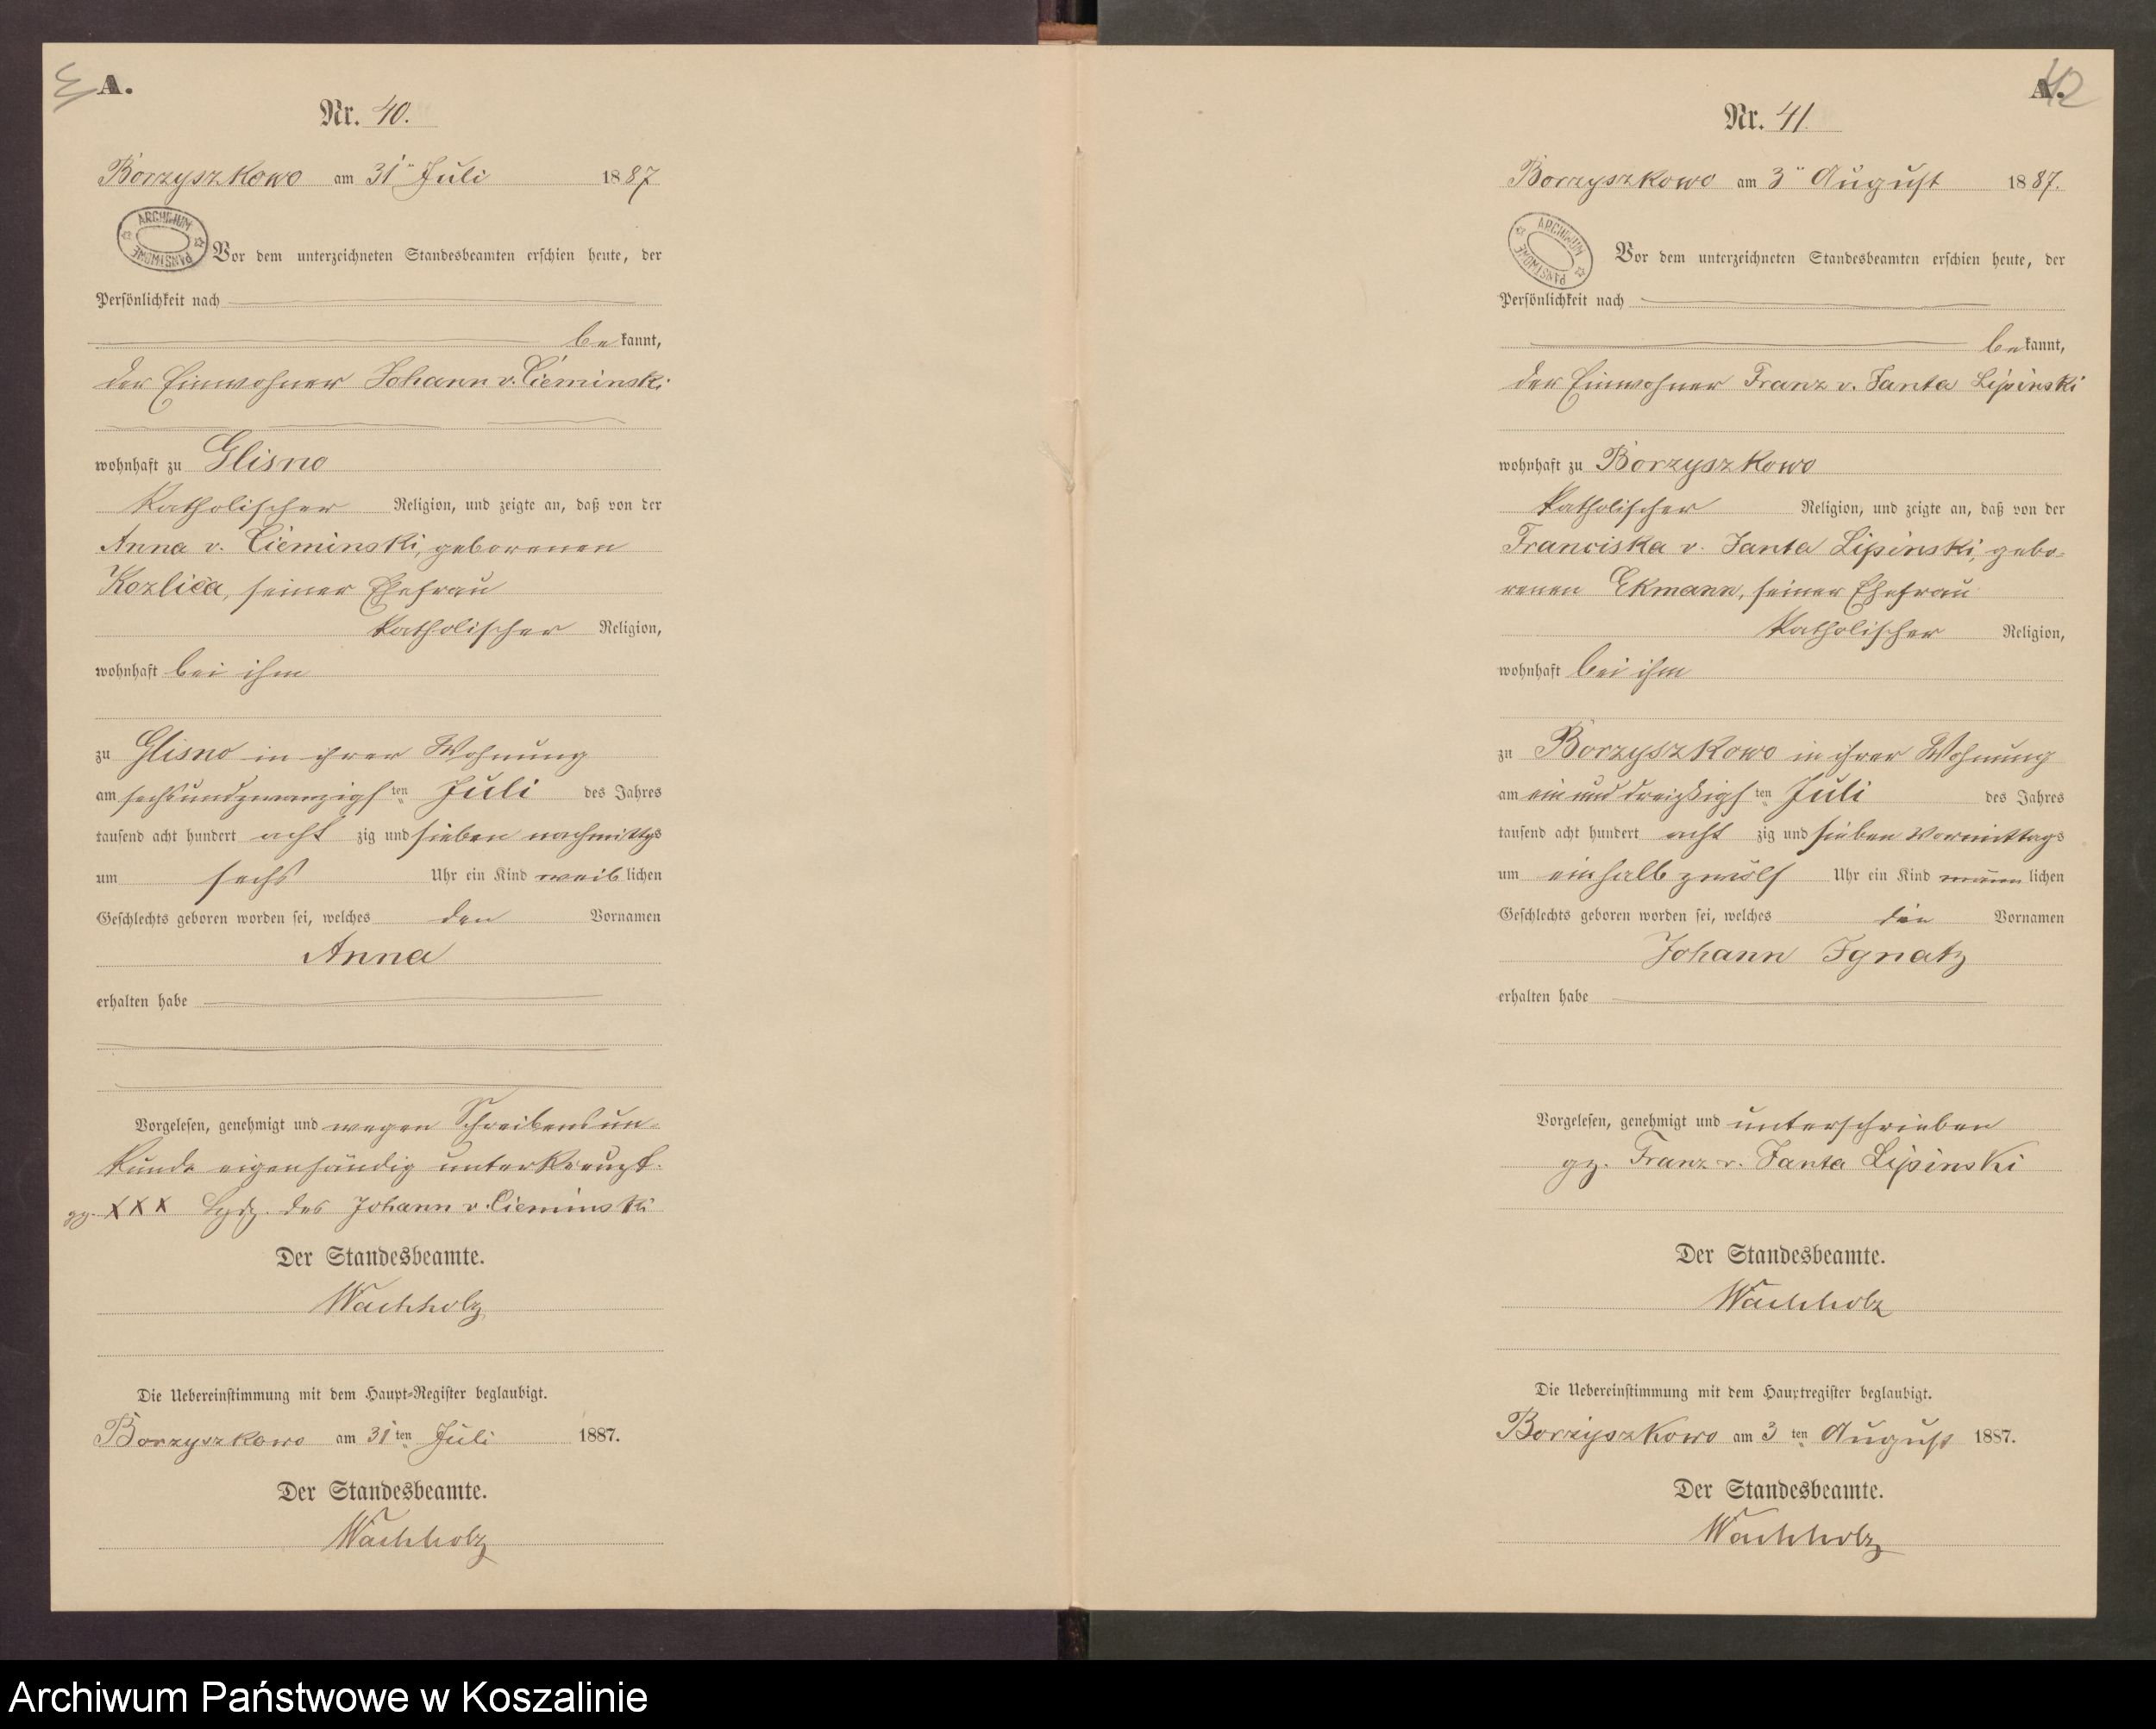 A.
Nr. 40.
Borzyszkowo am 31ten Juli 1887
ARCHIWUM PAŃSTWOWE
Vor dem unterzeichneten Standesbeamten erschien heute, der
Persönlichkeit nach
bekannt,
der Einwohner Johann v. Cieminski
wohnhaft zu Glisno
katholischer Religion, und zeigte an, daß von der
Anna v. Cieminski, geborenen
Kozlica, seiner Ehefrau
katholischer Religion,
wohnhaft bei ihm
zu Glisno in ihrer Wohnung
am sechsundzwanzigsten Juli des Jahres
tausend acht hundert achtzig und sieben nachmittags
um sechs Uhr ein Kind weiblichen
Geschlechts geboren worden sei, welches den Vornamen
Anna
erhalten habe
Vorgelesen, genehmigt und wegen Schreibensun-
kunde eigenhändig unterkreuzt.
gz. XXX Hdz. des Johann v. Cieminski
Der Standesbeamte.
Wachholz
Die Uebereinstimmung mit dem Haupt-Register beglaubigt.
Borzyszkowo am 31ten Juli 1887.
Der Standesbeamte.
Wachholz
A.
42
Nr. 41.
Borzyszkowo am 3ten August 1887.
ARCHIWUM PAŃSTWOWE
Vor dem unterzeichneten Standesbeamten erschien heute, der
Persönlichkeit nach
bekannt,
der Einwohner Franz v. Janta Lipinski
wohnhaft zu Borzyszkowo
katholischer Religion, und zeigte an, daß von der
Franciska v. Janta Lipinski, gebo-
renen Ekmann, seiner Ehefrau
katholischer Religion,
wohnhaft bei ihm
zu Borzyszkowo in ihrer Wohnung
am ein und dreizigsten Juli des Jahres
tausend acht hundert achtzig und sieben Vormittags
um ein halb zwölf Uhr ein Kind männlichen
Geschlechts geboren worden sei, welches die Vornamen
Johann Ignatz
erhalten habe
Vorgelesen, genehmigt und unterschrieben
gz. Franz v. Janta Lipinski
Der Standesbeamte.
Wachholz
Die Uebereinstimmung mit dem Hauptregister beglaubigt.
Borzyszkowo am 3ten August 1887.
Der Standesbeamte.
Wachholz
Archiwum Państwowe w Koszalinie